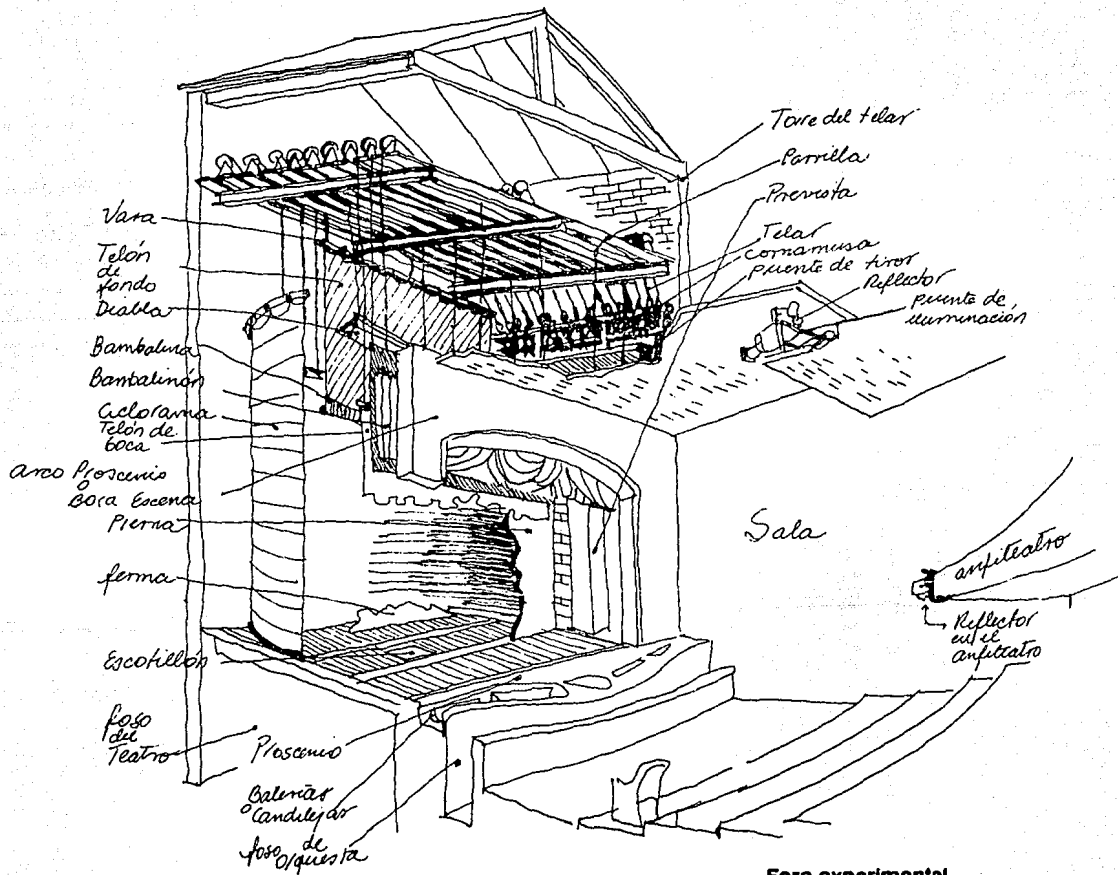 Torre del telar
Parrilla
Prevista
Telar
Cornamusa
puente de tiros
Reflector
puente de
iluminación
Vara
Telón
de
fondo
Diabla
Bambalina
Bambalinón
Ciclorama
Telón de
boca
Arco Proscenio
o
Boca Escena
Pierna
ferma
Escotillón
foso
del
Teatro
Proscenio
Baterías
o Candilejas
foso de
Orquesta
Sala
anfiteatro
Reflector
en el
anfiteatro
Foro experimental